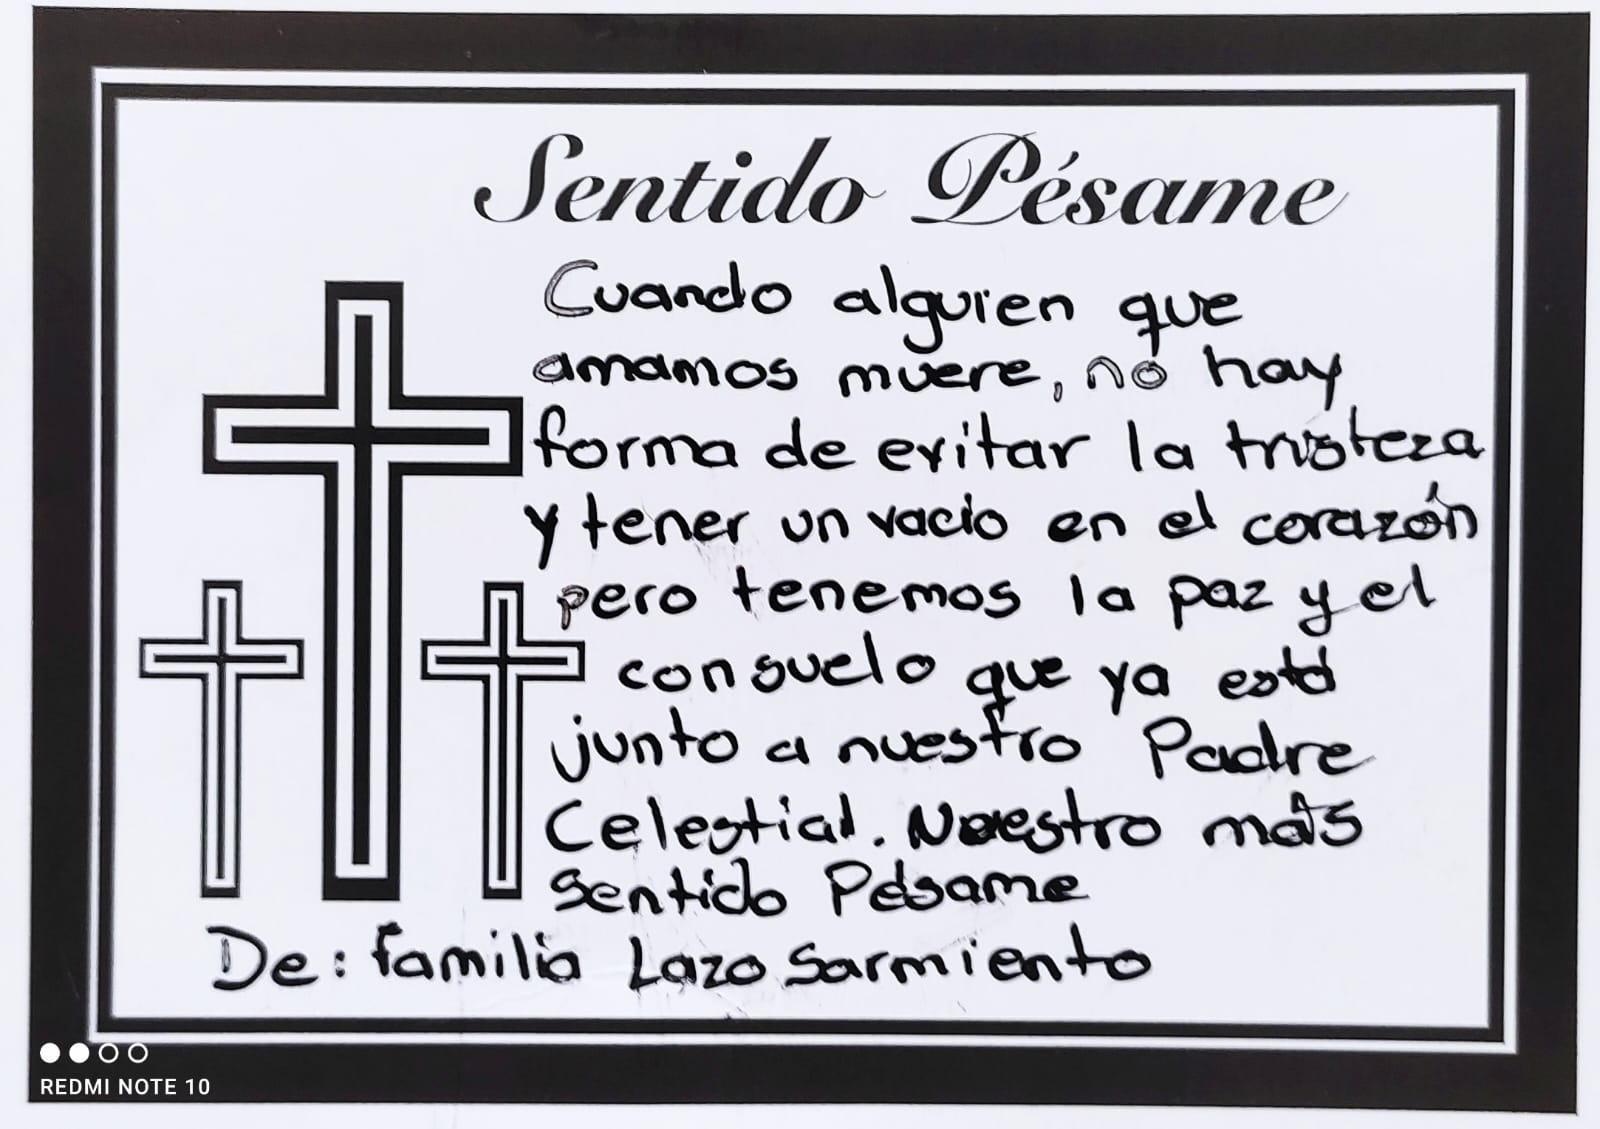 Sentido Pésame
Cuando alguien que
amamos muere, no hay
forma de evitar la tristeza
y tener un vacio en el corazón
pero tenemos la paz y el
consuelo que ya está
junto a nuestro Padre
Celestial. Nuestro más
Sentido Pésame
De: familia Lazo Sarmiento
REDMI NOTE 10